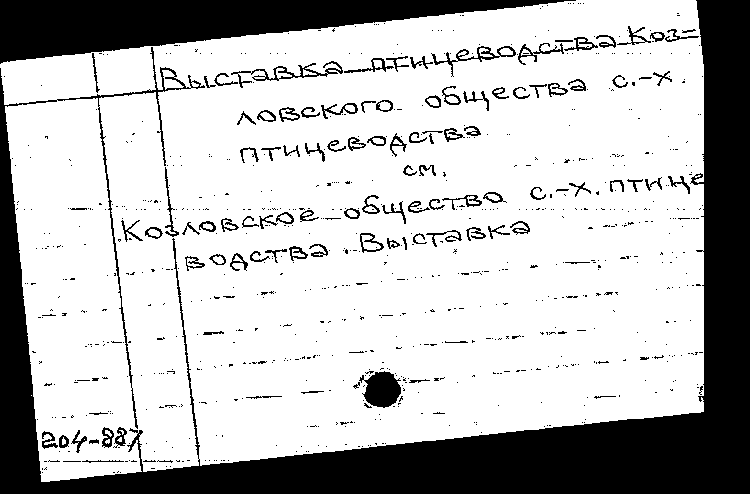 Выставка птицеводства Коз=
ловского общества с.-х.
птицеводства
см.
Козловское общество с.-х. птице
водства. Выставка
204-887